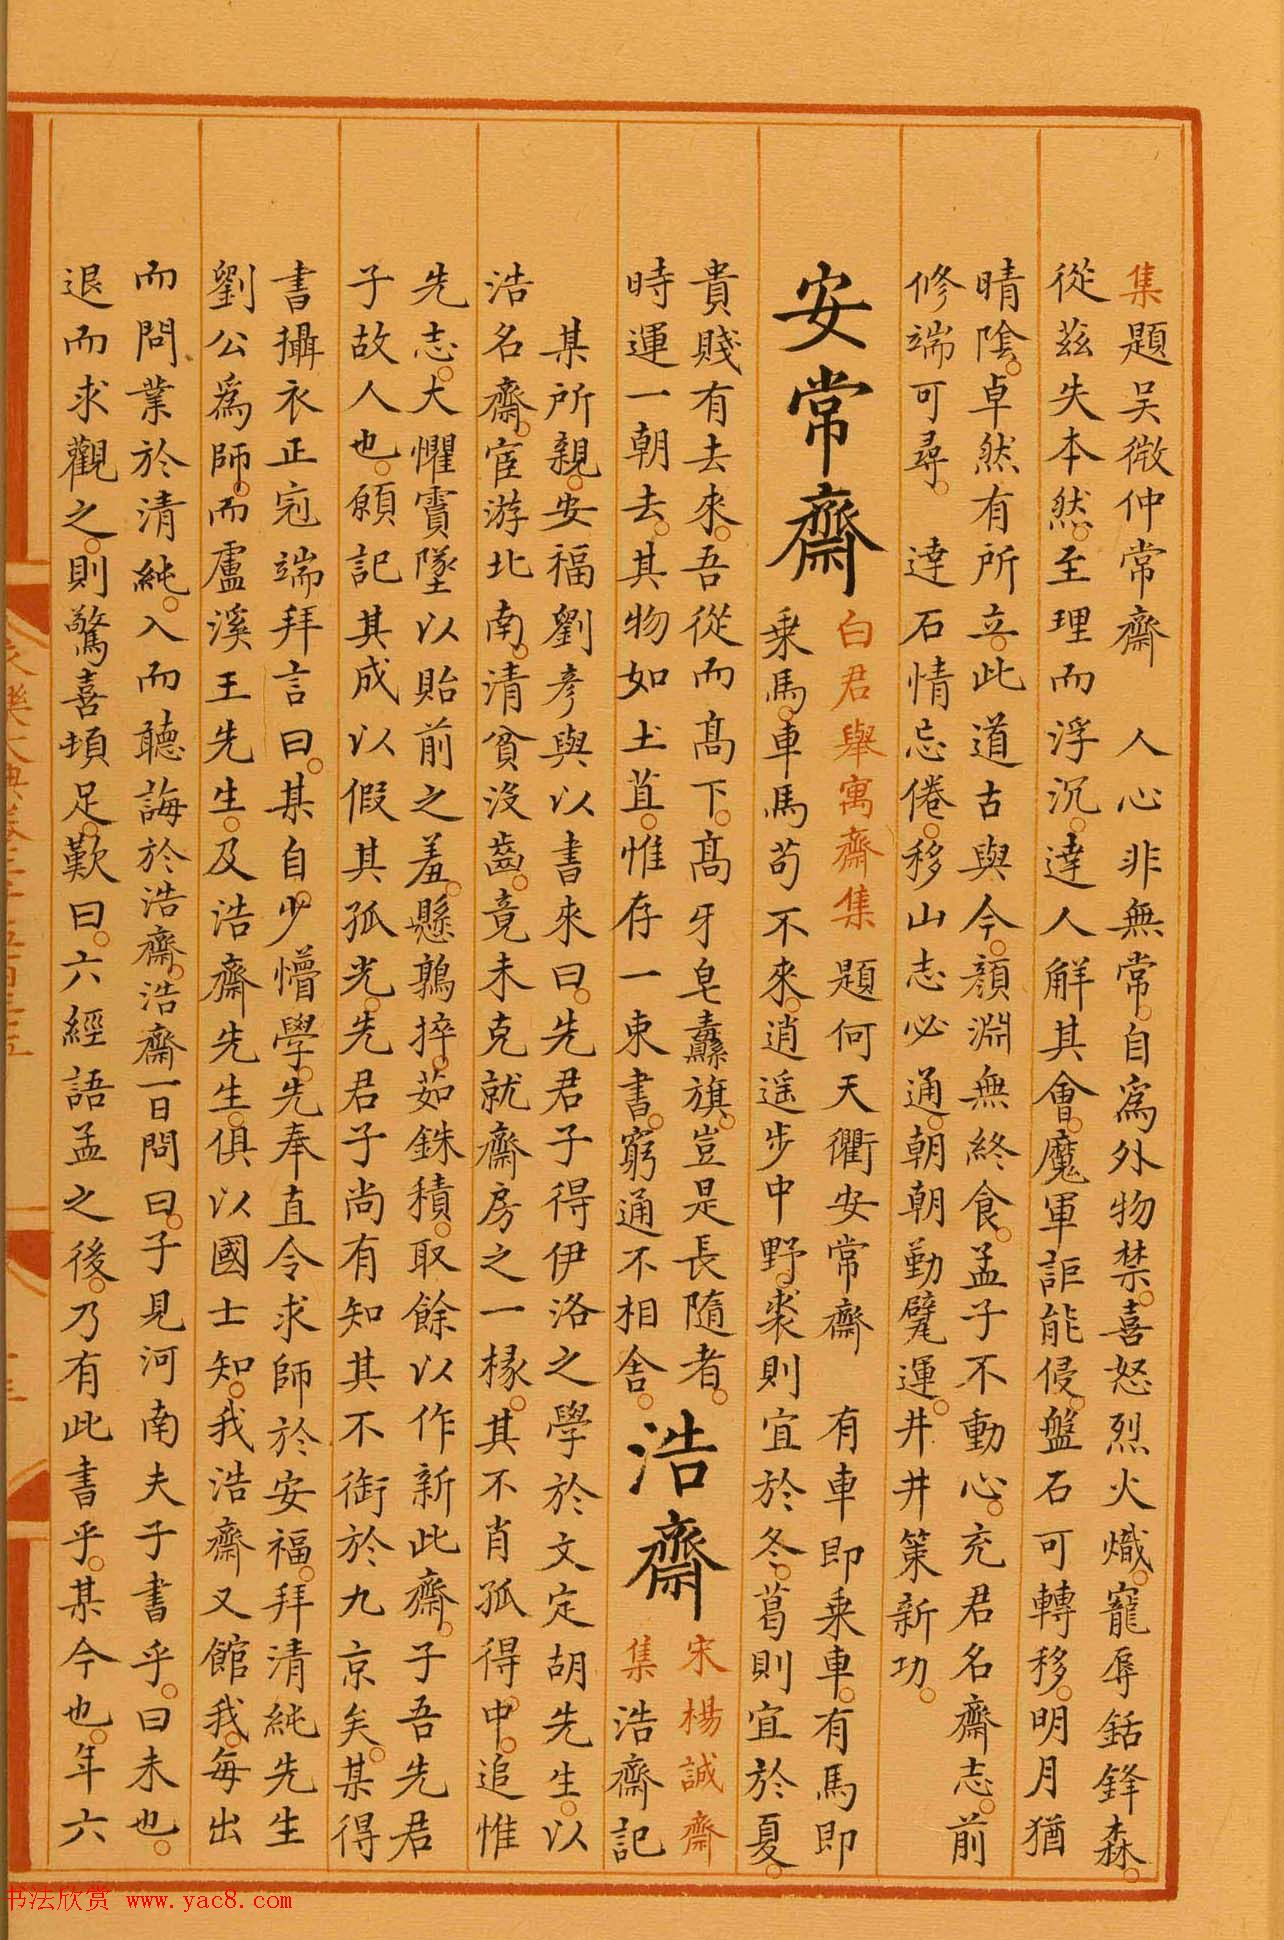 集題吴微仲常齋　人心非無常。自為外物禁。喜怒烈火熾。寵辱銛鋒森。
從茲失本然。至理而浮沉。達人解其會。魔軍詎能侵。盤石可轉移。明月猶
晴陰。卓然有所立。此道古與今。顔淵無終食。孟子不動心。充君名齋志。前
修端可尋。　達石情忘倦。移山志必通。朝朝勤甓運。井井策新功。
安常齋
白君舉寓齋集　題何天衢安常齋　有車即乗車。有馬即
乗馬。車馬苟不來。逍遥步中野。裘則宜於冬。葛則宜於夏。
貴賤有去來。吾從而髙下。髙牙皂纛旗。豈是長隨者。
時運一朝去。其物如土苴。惟存一束書。窮通不相舍。
浩齋
宋楊誠齋
集浩齋記
某所親。安福劉彦與以書來曰。先君子得伊洛之學於文定胡先生。以
浩名齋。宦游北南。清貧没齒。竟未克就齋房之一椽。其不肖孤得中。追惟
先志。大懼霣墜以貽前之羞。懸鶉捽茹銖積。取餘以作新此齋。子吾先君
子故人也。願記其成以假其孤光。先君子尚有知其不銜於九京矣。某得
書攝衣正冠端拜言曰。某自少懵學。先奉直令求師於安福。拜清純先生
劉公為師。而盧溪王先生。及浩齋先生。俱以國士知。我浩齋又館我。每出
而問業於清純。入而聽誨於浩齋。浩齋一日問曰。子見河南夫子書乎。曰未也。
退而求觀之。則驚喜頓足。歎曰。六經語孟之後。乃有此書乎。某今也。年六
书法欣赏 www.yac8.com